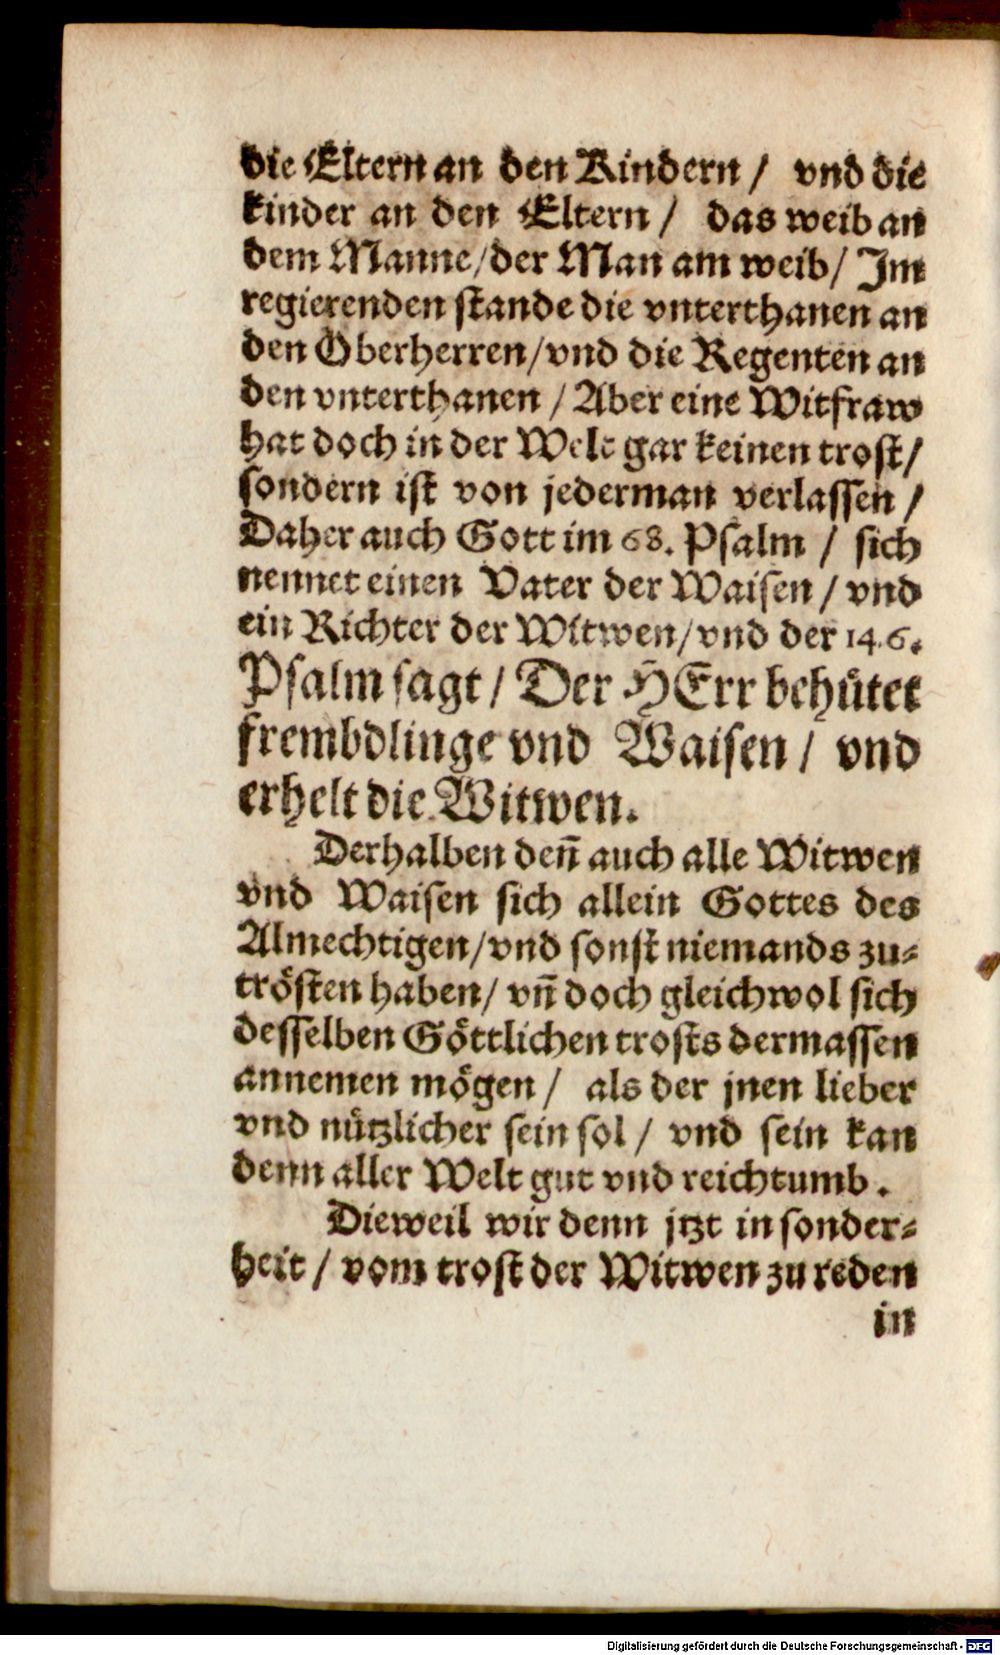 die Eltern an den Kindern / vnd die
kinder an den Eltern / das weib an
dem Manne/der Man am weib/ Jm
regierenden stande die vnterthanen an
den Oberherren/vnd die Regenten an
den vnterthanen / Aber eine Witfraw
hat doch in der Welt gar keinen trost/
sondern ist von jederman verlassen /
Daher auch Gott im 68. Psalm / sich
nennet einen Vater der Waisen / vnd
ein Richter der Witwen/vnd der 14.6.
Psalm sagt / Der HErr behütet
frembdlinge vnd Waisen / vnd
erhelt die Witwen.
Derhalben deñ auch alle Witwen
vnd Waisen sich allein Gottes des
Almechtigen/vnd sonst niemands zu-
trösten haben/ vñ doch gleichwol sich
desselben Göttlichen trosts dermassen
annemen mögen / als der jnen lieber
vnd nützlicher sein sol / vnd sein kan
denn aller Welt gut vnd reichtumb.
Dieweil wir denn jtzt in sonder-
heit / vom trost der Witwen zu reden
in
Digitalisierung gefördert durch die Deutsche Forschungsgemeinschaft - DFG